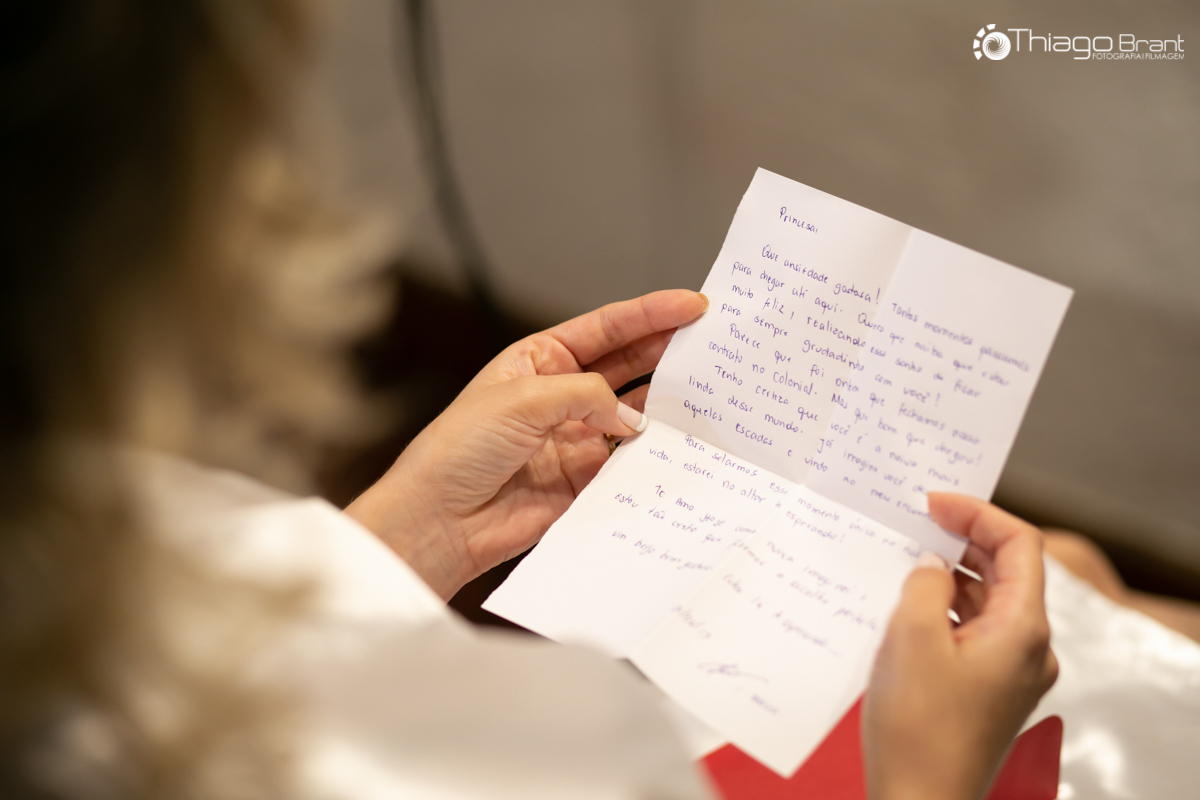 Thiago Brant
FOTOGRAFIA | FILMAGEM
Princesa,
Que ansiedade gostosa! Tantos momentos passamos
para chegar até aqui. Quero que saiba que estou
muito feliz, realizando esse sonho de ficar
para sempre grudadinho com você!
Parece que foi ontem que fechamos nosso
contrato no Colonial. Mas que bom que chegou!
Tenho certeza que você é a noiva mais
linda desse mundo. Já imagino você descendo
aquelas escadas e vindo ao meu encontro
Para selarmos esse momento único na nossa
vida, estarei no altar a esperando!
Te amo hoje como nunca imaginei e
estou tão certo que fizemos a escolha perfeita
um beijo bem gostoso